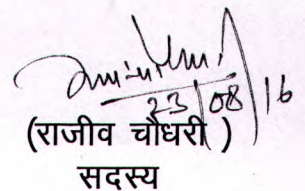 23/08/16
(राजीव चौधरी )
सदस्य